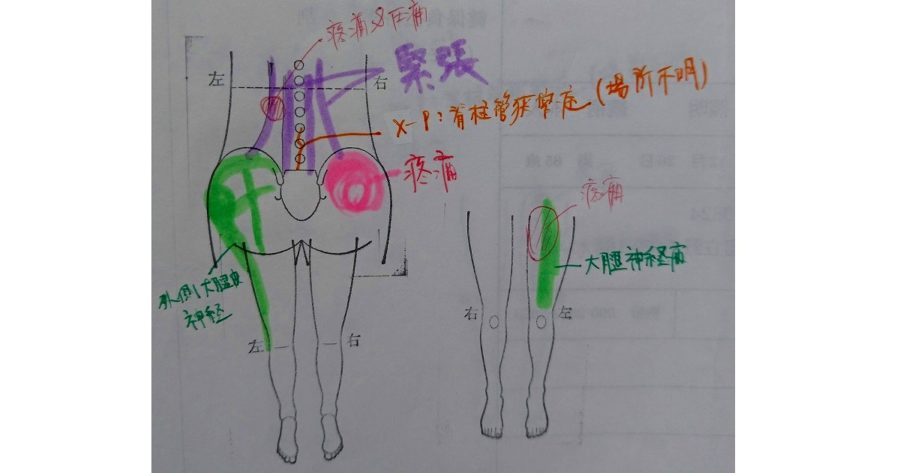 疼痛&圧痛
緊張
左
右
X-P:脊柱管狭窄症(場所不明)
疼痛
疼痛
大腿神経痛
外側大腿皮
神経
右
左
左
右